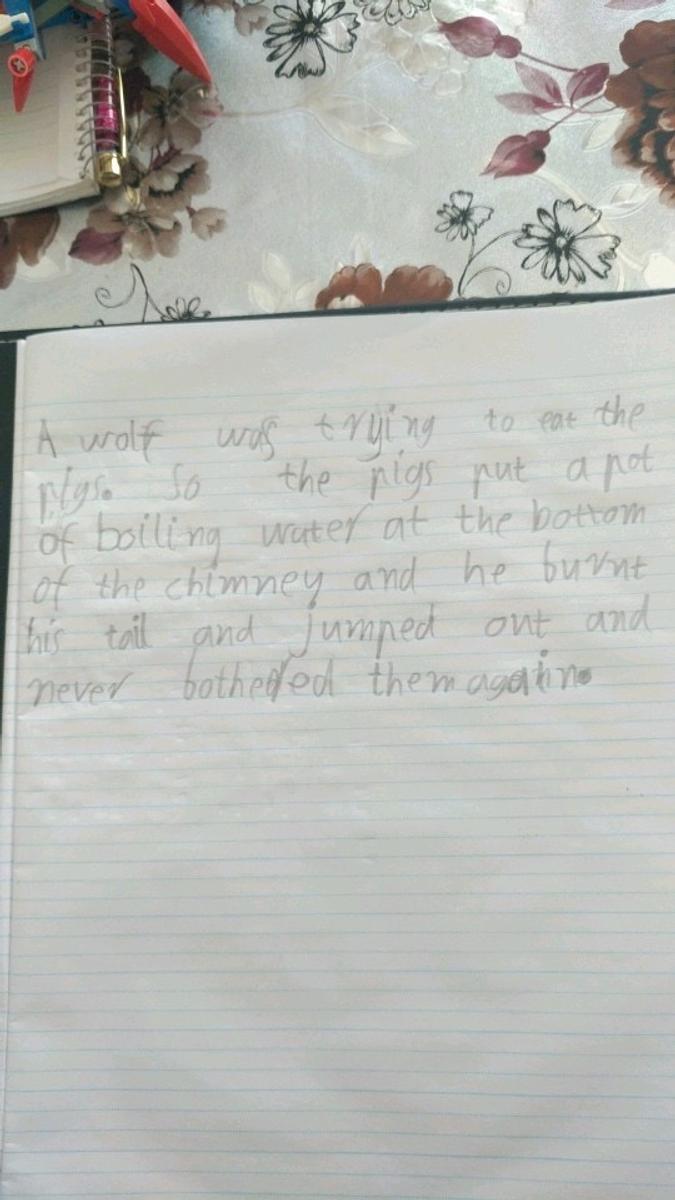 A wolf was trying to eat the
pigs. So the pigs put a pot
of boiling water at the bottom
of the chimney and he burnt
his tail and jumped out and
never bothered them again.